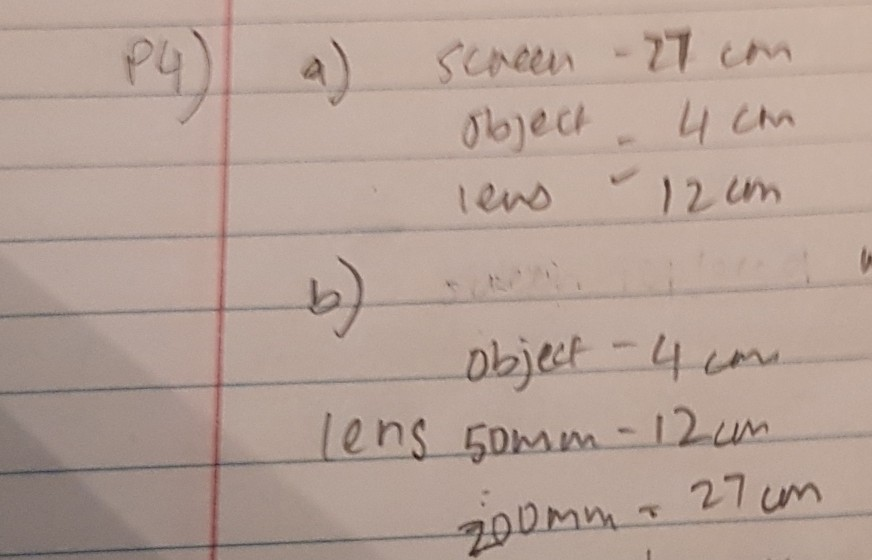 P4) a) screen - 27 cm
object - 4 cm
lens - 12 cm
b)
object - 4 cm
lens 50mm - 12 cm
200mm - 27 cm